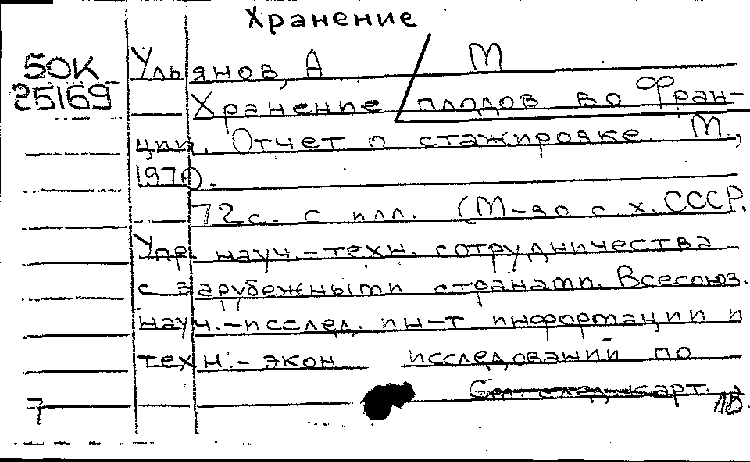 Хранение
50К
25169
Ульянов, А М
Хранение плодов во Фран-
ции. Отчет о стажировке. М.,
1970.
72 с. с илл. (М-во с. х. СССР.
Упр. науч.-техн. сотрудничества
с зарубежными странами. Всесоюз.
науч.-исслед. ин-т информации и
техн.-экон исследований по
См. след. карт.
7